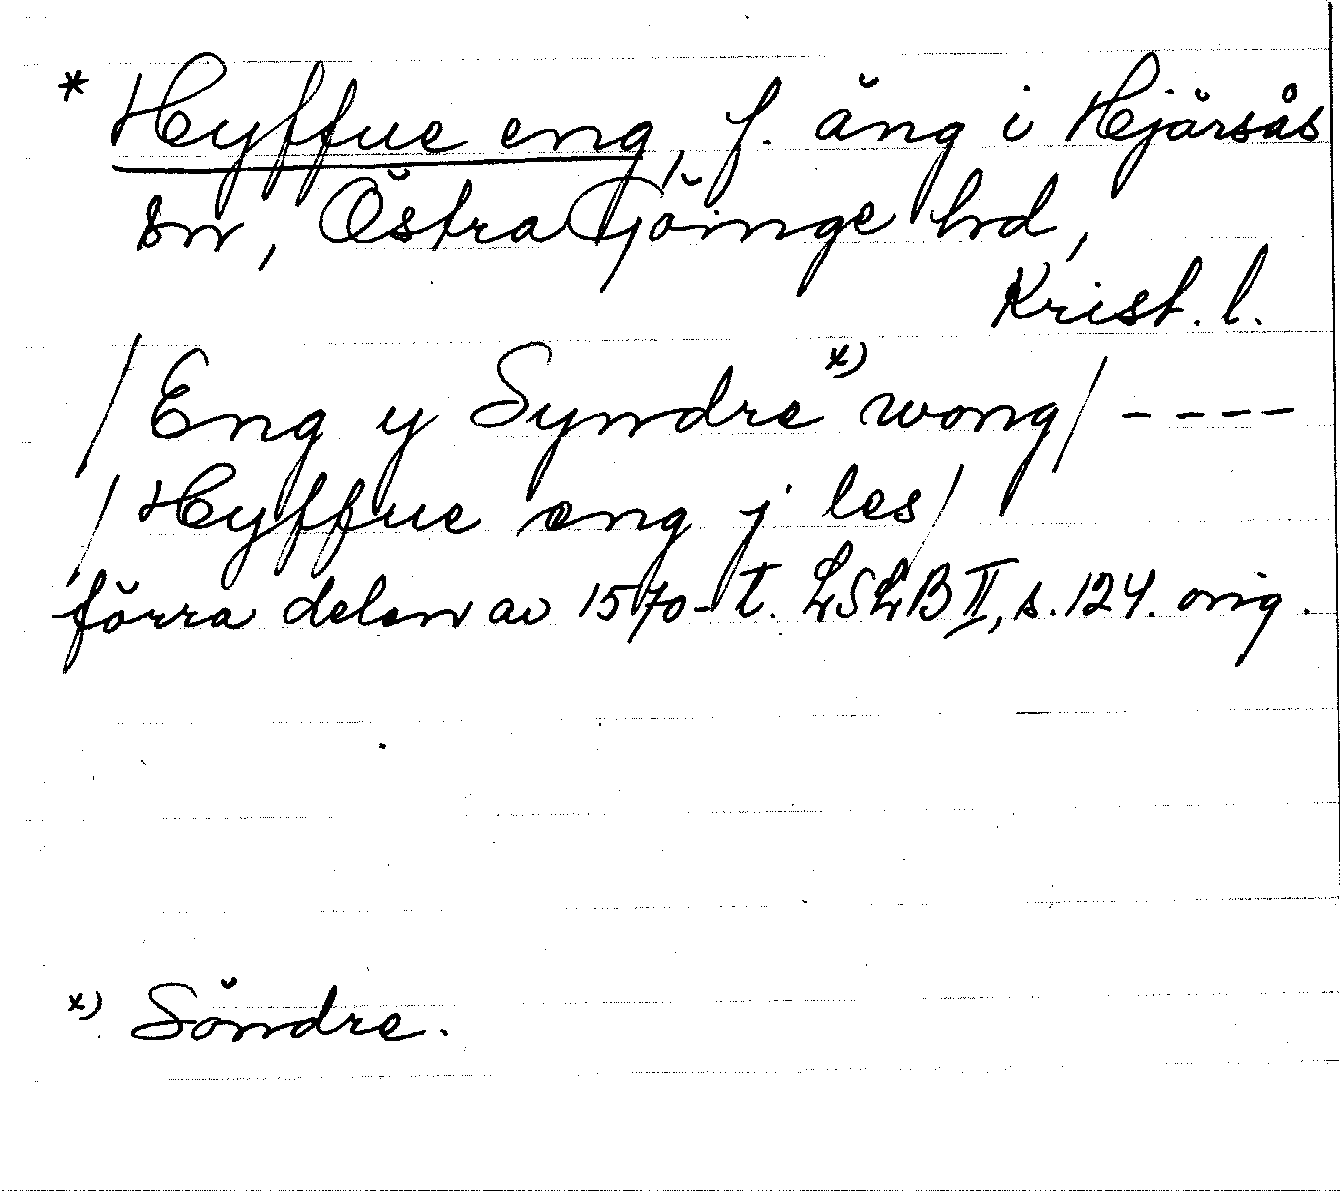 * Hyffue eng, f. äng i Hjärsås
sn, Östra Göinge hd,
Krist. l.
/Eng y Syndre x) wong/ ----
/Hyffue eng j les/
förra delen av 1570-t. LSLB II, s. 124. orig.
x) Söndre.